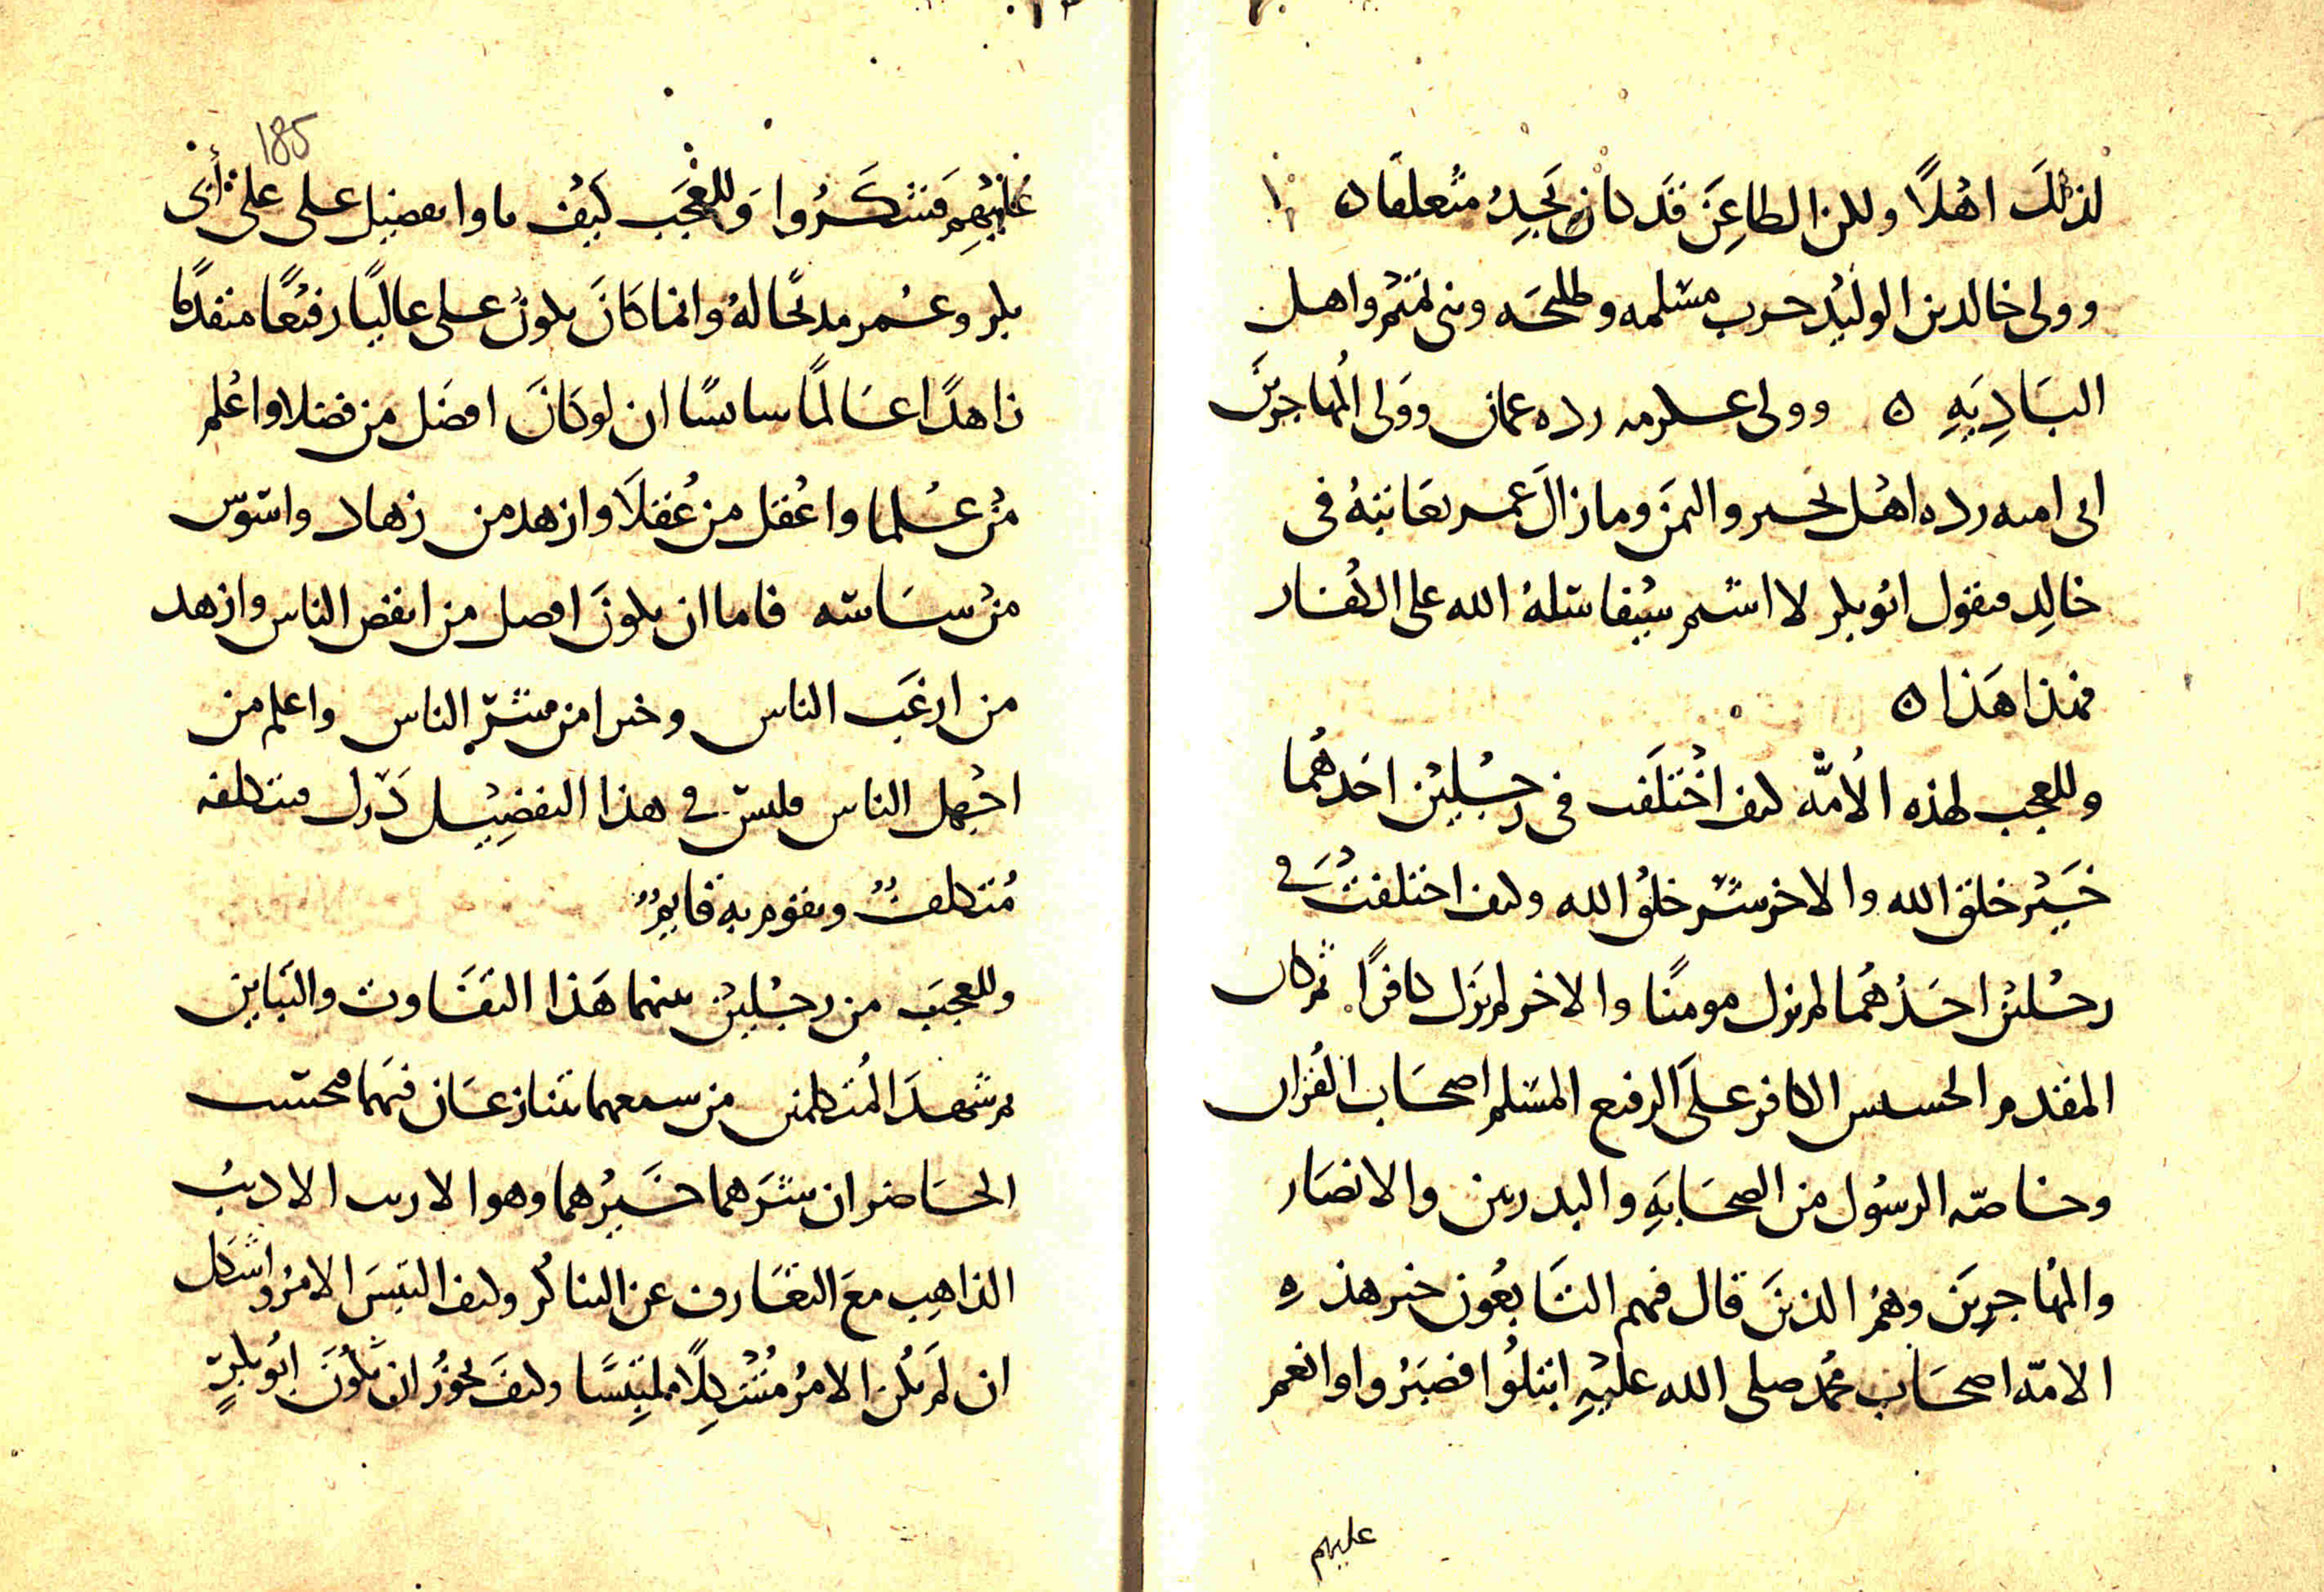 لذلك اهلًا ولكن الطاعن قد كان يجد متعلقا ه
وولى خالد بن الوليد حرب مسلمه وطليحه وبنى تميم واهل
البادية ه وولى عكرمه رده عمان وولى المهاجر بن
ابى اميه رده اهل نجير واليمن وما زال عمر يعاتبه فى
خالد فيقول ابو بكر لا اشيم سيفا سله الله على الكفار
فهذا هذا ه
وللعجب لهذه الأمّة كيف اختلفت فى رجلين احدهما
خير خلق الله والاخر شر خلق الله وكيف اختلفت في
رجلين احدهما لم يزل مومنًا والاخر لم يزل كافرًا ثم كان
المقدم الخسيس الكافر على الرفيع المسلم اصحاب القران
وخاصّه الرسول من الصحابة والبدريين والانصار
والمهاجرين وهم الذين قال فيهم التابعون خير هذه
الامّه اصحاب محمد صلى الله عليه ابتلوا فصبروا وانعم
عليهم
185
عليهم فشكروا وللعجب كيف راوا تفضيل على على أبى
بكر وعمر مدحًا له وانما كان يكون على عاليًا رفيعًا متقدمًا
زاهدًا عالمًا سائسًا ان لو كان افضل من فضلا واعلم
من علما واعقل من عقلا وازهد من زهاد واسوس
من ساسه فاما ان يكون افضل من انقص الناس وازهد
من ارغب الناس وخيرا من شرّ الناس واعلم من
اجهل الناس فليس في هذا التفضيل درك فيتكلفه
متكلفٌ ويقوم به قايمٌ
وللعجب من رجلين بينهما هذا التفاوت والتباين
ثم شهد المتكلمين من سمعهما يتنازعان فيهما فحسب
الحاضر ان شرهما خيرهما وهو الارب الاديب
الذاهب مع التعارف عن التناكر وكيف التبس الامر واشكل
ان لم يكن الامر مشكلًا ملتبسًا وكيف يجوز ان يكون ابو بكرٍ